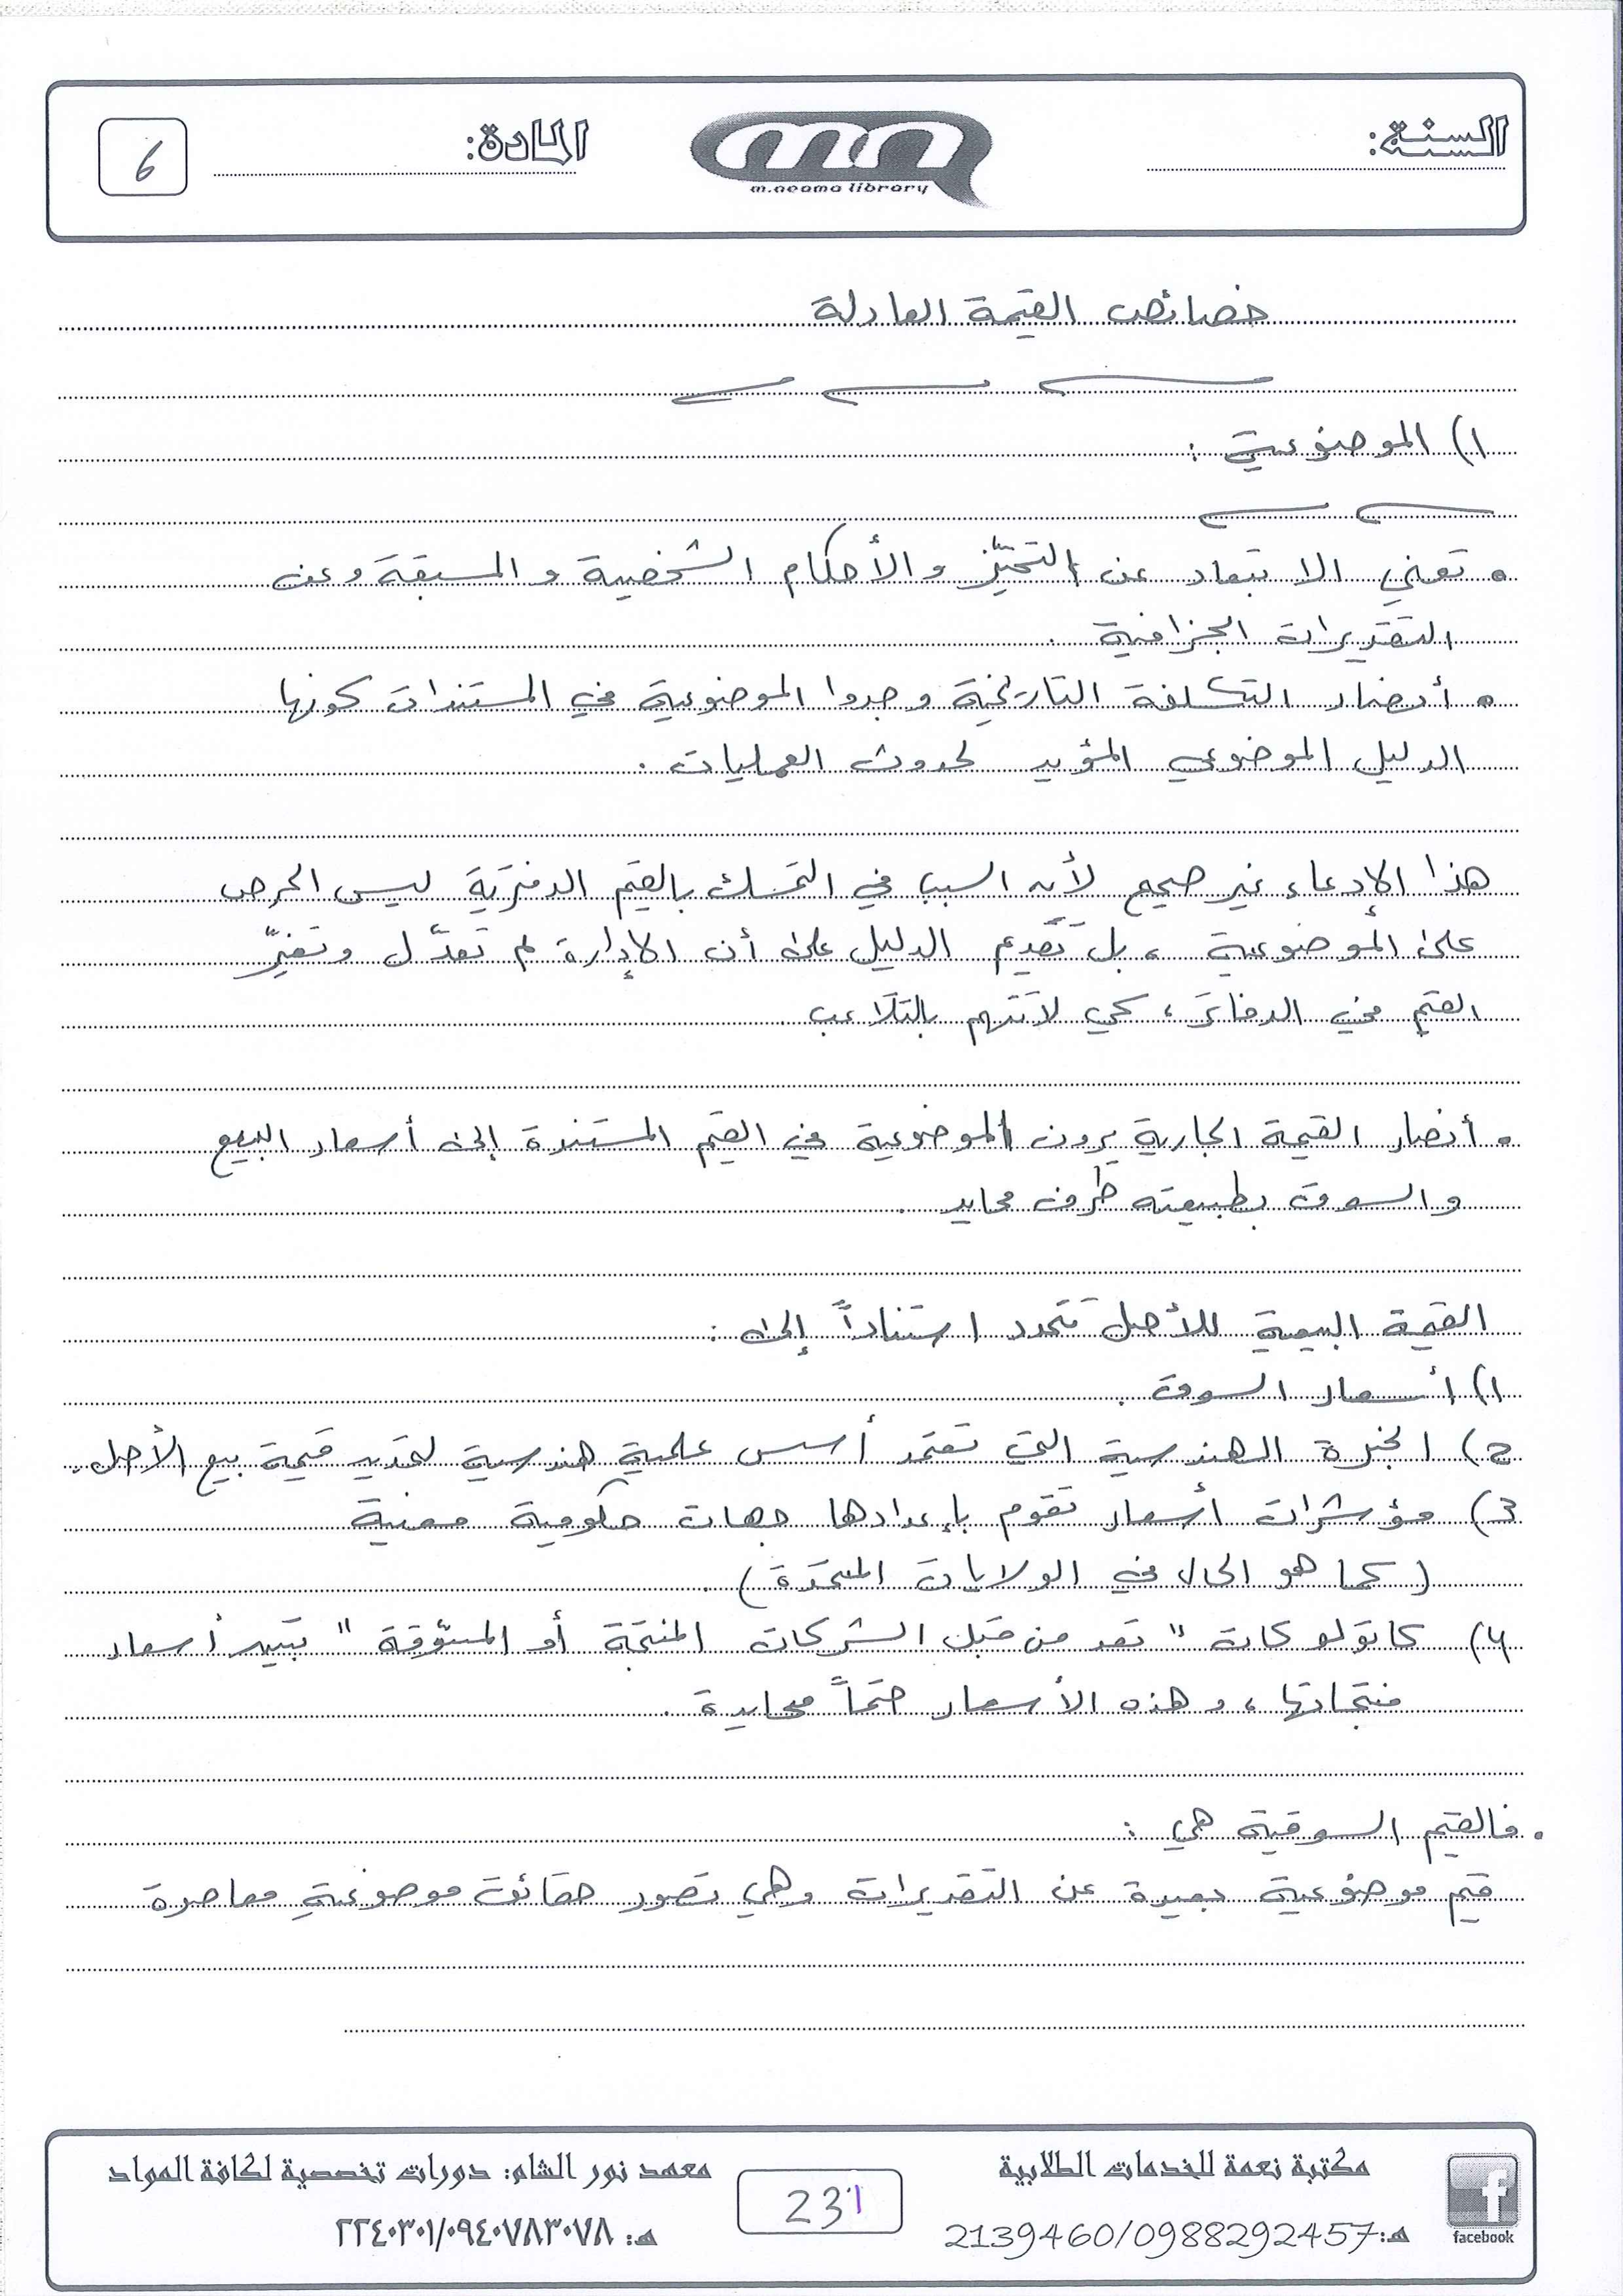 السنة:
mn
m.neama library
المادة:
6
خصائص القيمة العادلة
1) الموضوعية :
• تعني الابتعاد عن التحيّز و الأحكام الشخصية و المسبقة و عن
التقديرات الجزافية .
• أنصار التكلفة التاريخية وجدوا الموضوعية في المستندات كونها
الدليل الموضوعي المؤيد لحدوث العمليات .
هذا الإدعاء غير صحيح لأنه السبب في التمسك بالقيم الدفترية ليس الحرص
على الموضوعية ، بل تقديم الدليل على أن الإدارة لم تعدّل وتغيّر
القيم في الدفاتر ، كي لا تتهم بالتلاعب
• أنصار القيمة الجارية يرون الموضوعية في القيم المستندة إلى أسعار البيع
والسوق بطبيعته طرف محايد .
القيمة البيعية للأصل تتحدد استناداً إلى :
1) أسعار السوق .
2) الخبرة الهندسية التي تعتمد أسس علمية هندسية لتحديد قيمة بيع الأصل .
3) مؤشرات أسعار تقوم بإعدادها جهات حكومية معنية
(كما هو الحال في الولايات المتحدة) .
4) كاتولوكات " تعد من قبل الشركات المنتجة أو المسوّقة " تبين أسعار
منتجاتها ، وهذه الأسعار حتماً محايدة .
• فالقيم السوقية هي :
قيم موضوعية بعيدة عن التقديرات وهي تصور حقائق موضوعية معاصرة
facebook
مكتبة نعمة للخدمات الطلابية
هـ:2139460/0988292457
231
معهد نور الشام: دورات تخصصية لكافة المواد
هـ: ٢٢٤٠٣٠١/٠٩٤٠٧٨٣٠٧٨